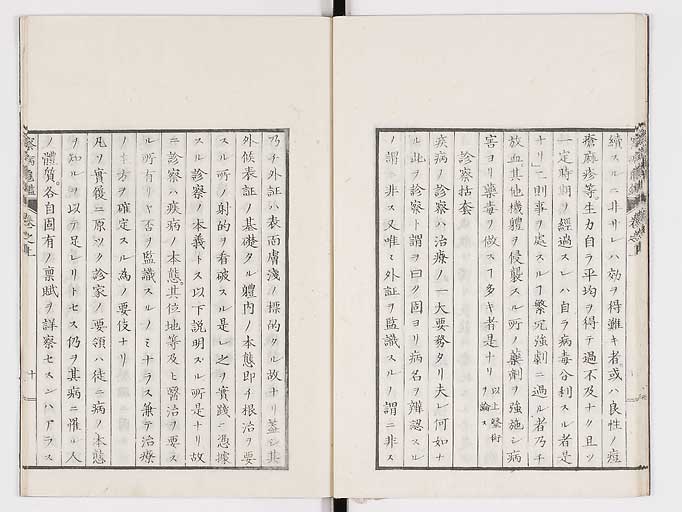 續スルニ非サレハ効ヲ得難キ者或ハ良性ノ痘
瘡麻疹等生力自ラ平均ヲ得テ過不及ナク且ツ
一定時期ヲ經過スレハ自ラ病毒分利スル者是
ナリ」二則事ヲ處スルヿ繁冗強劇ニ過ル者乃チ
放血其他機軆ヲ侵襲スル所ノ藥劑ヲ強施シ病
害ヨリ藥毒ヲ做スヿ多キ者是ナリ以上醫術ヲ論ス
診察括套
疾病ノ診察ハ治療ノ一大要務タリ夫レ何如ナ
ル此ヲ診察ト謂フ曰ク固ヨリ病名ヲ辨認スル
ノ謂ニ非ス又唯ミ外証ヲ監識スルノ謂ニ非ス
乃チ外証ハ表面膚淺ノ標的タル故ナリ蓋シ其
外候表証ノ基礎タル軆内ノ本態即チ根治ヲ要
スル所ノ射的ヲ看破スル是レ之ヲ實踐ニ憑據
スル診察ノ本義トス以下説明スル所是ナリ故
ニ診察ハ疾病ノ本態其位地等及ヒ醫治ヲ要ス
ル所有リヤ否ヲ監識スルノミナラス兼テ治療
ノ方ヲ確定スル為ノ要伎ナリ
凡ソ實際ニ原ツク診家ノ要領ハ徒ニ病ノ本態
ヲ知ルヲ以テ足レリトセス仍ヲ其病ニ罹ル人
ノ軆質各自固有ノ禀賦ヲ詳察セスンハアラス
察病龜鑑 卷之上
十